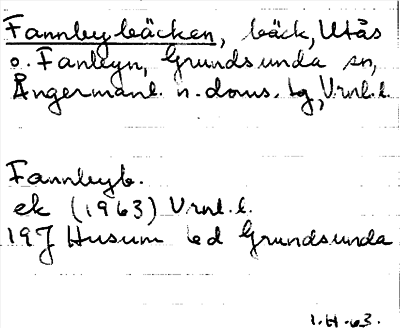 Fannbybäcken, bäck, Utås
o. Fanbyn, Grundsunda sn,
Ångermanl. n. doms. tg, Vrnl. l.
Fannbyb.
ek (1963) Vrnl. l.
19J Husum bd Grundsunda
1.H.63.